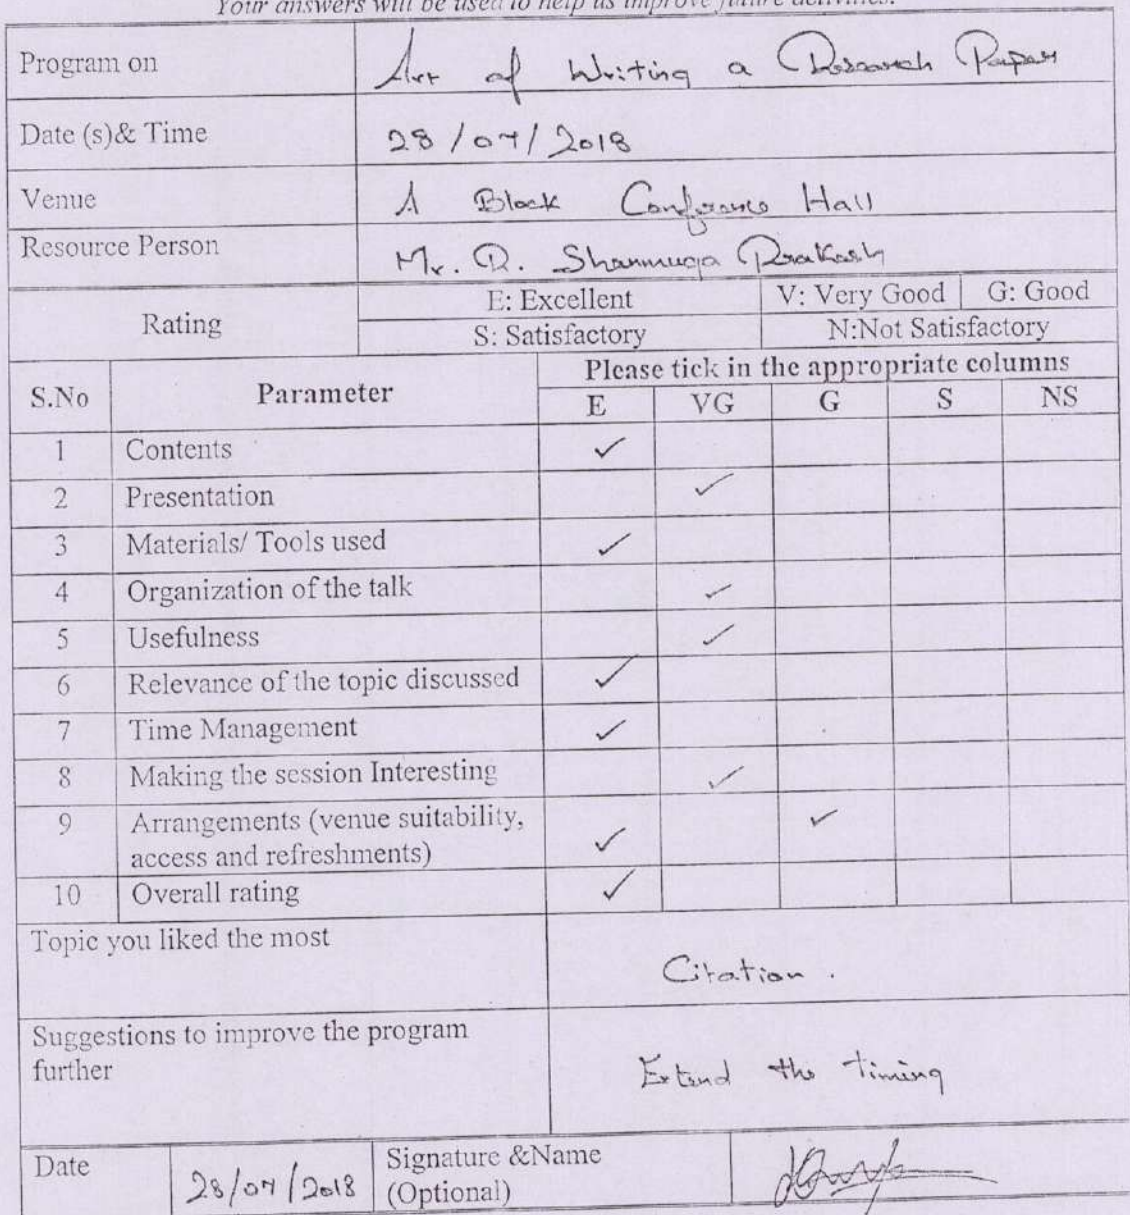 Your answers will be used to help us improve future activities.
Program on Art of Writing a Research Paper
Date (s)& Time 28/07/2018
Venue A Block Conference Hall
Resource Person Mr. D. Shanmuga Prakash
Rating E: Excellent V: Very Good G: Good
S: Satisfactory N:Not Satisfactory
S.No Parameter Please tick in the appropriate columns
E VG G S NS
1 Contents ✓
2 Presentation ✓
3 Materials/ Tools used ✓
4 Organization of the talk ✓
5 Usefulness ✓
6 Relevance of the topic discussed ✓
7 Time Management ✓
8 Making the session Interesting ✓
9 Arrangements (venue suitability, ✓
access and refreshments) ✓
10 Overall rating ✓
Topic you liked the most
Citation.
Suggestions to improve the program
further
Extend the timing
Date 28/07/2018 Signature &Name
(Optional)